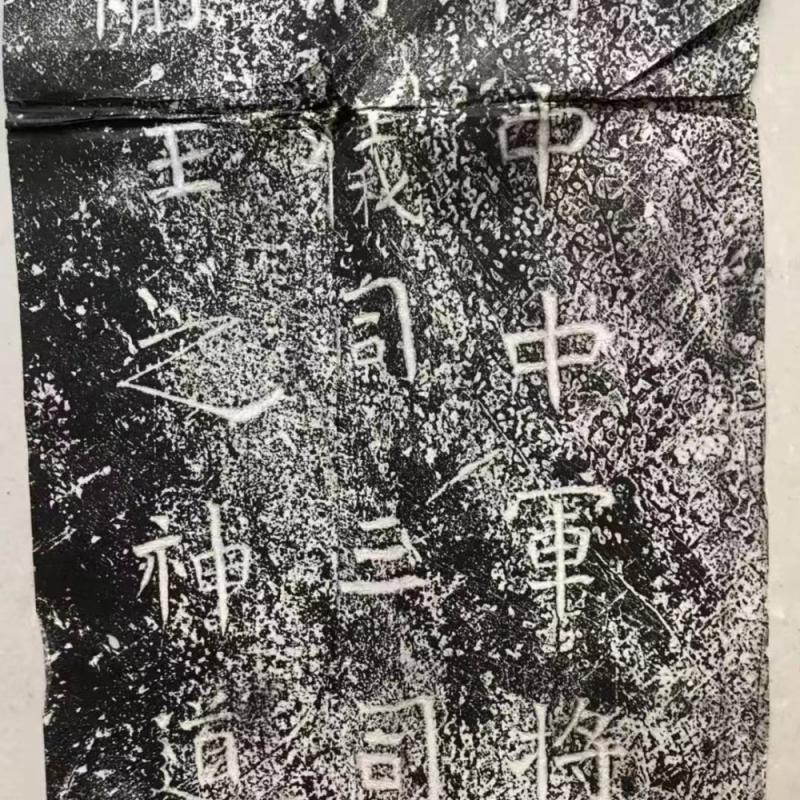 中中軍將
儀同三司
王之神道